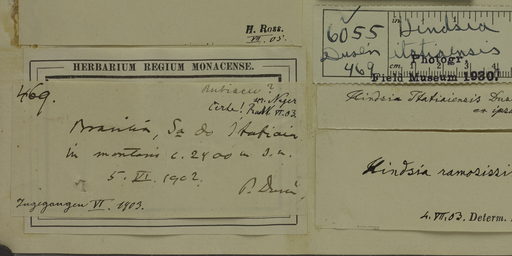 H. Ross.
VI. 03.
HERBARIUM REGIUM MONACENSE.
469.
Rubiacee?
teste! Radlk. VI. 03
Brasilia, Sa do Itatiaia
in montanis c. 2400 m s. m.
5. VI. 1902.
P. Dusén,
Zugegangen VI. 1903.
6055 Hindsia
Dusén itatiaiensis
469
Photogr.
Field Museum 1930.
cm. 1 2 3 4
Hindsia Itatiaiensis Dus
Hindsia ramosissi
4. VII. 03. Determ.